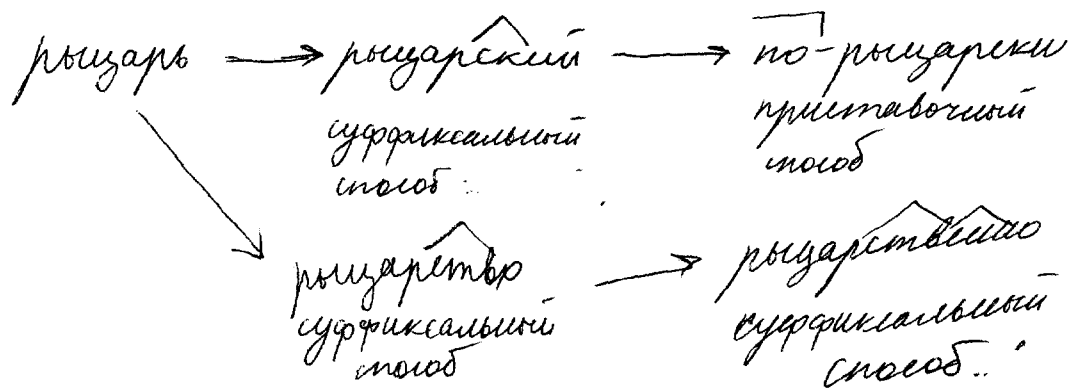 рыцарь → рыцарский → по-рыцарски
суффиксальный
способ
приставочный
способ
рыцарство → рыцарственно
суффиксальный
способ
суффиксальный
способ